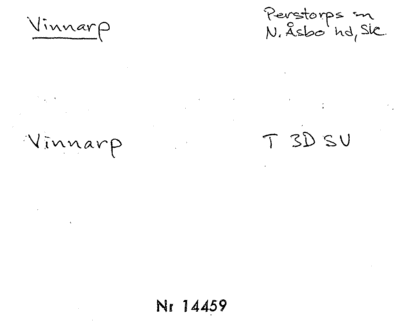 Vinnarp
Perstorps sn
N. Åsbo hd, Sk
Vinnarp
T 3D SV
Nr 14459